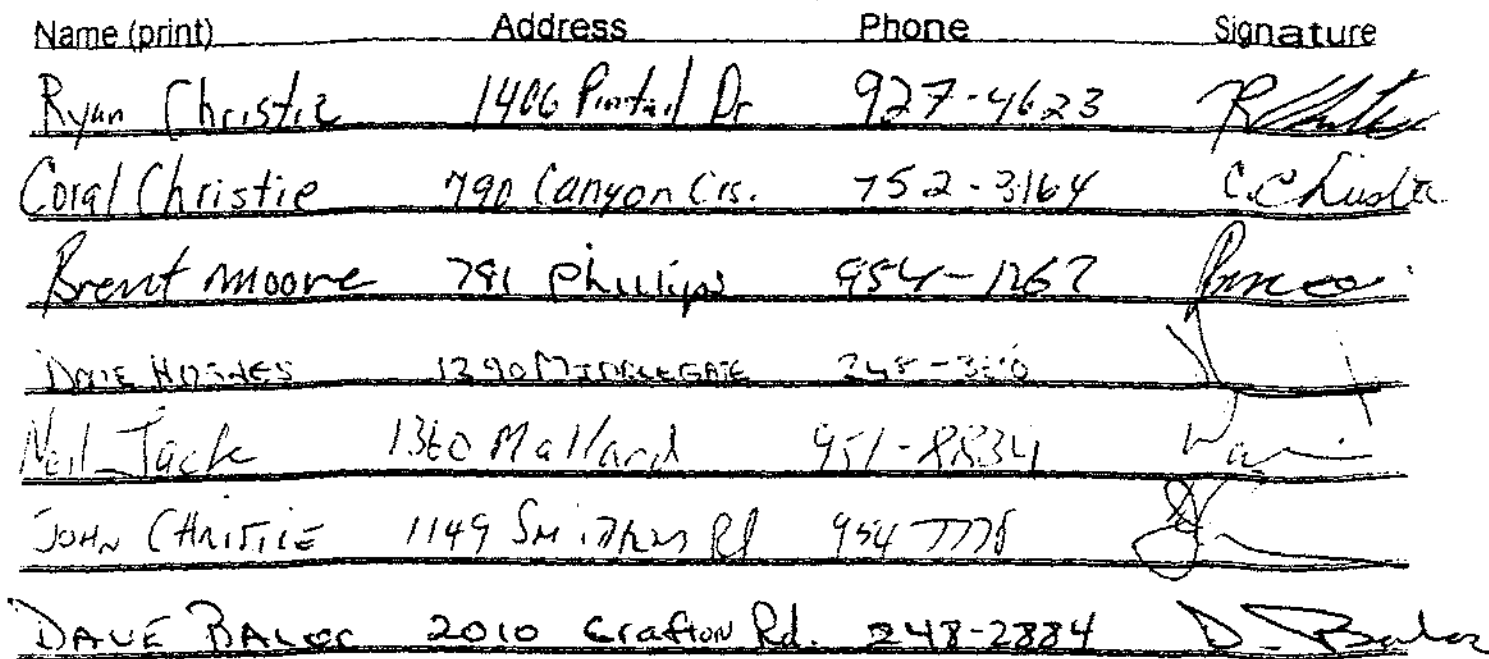 Name (print) Address Phone Signature
Ryan Christie 1406 Pintail Dr 927-4623
Coral Christie 790 Canyon Crs. 752-3164 C. Christie
Brent Moore 791 Phillips 954-1267
Dave 1290 Middlegate
Neil Jack 1360 Mallard 951-8834
John Christie 1149 Rd 954
Dave 2010 Grafton Rd. 248-2884 D.